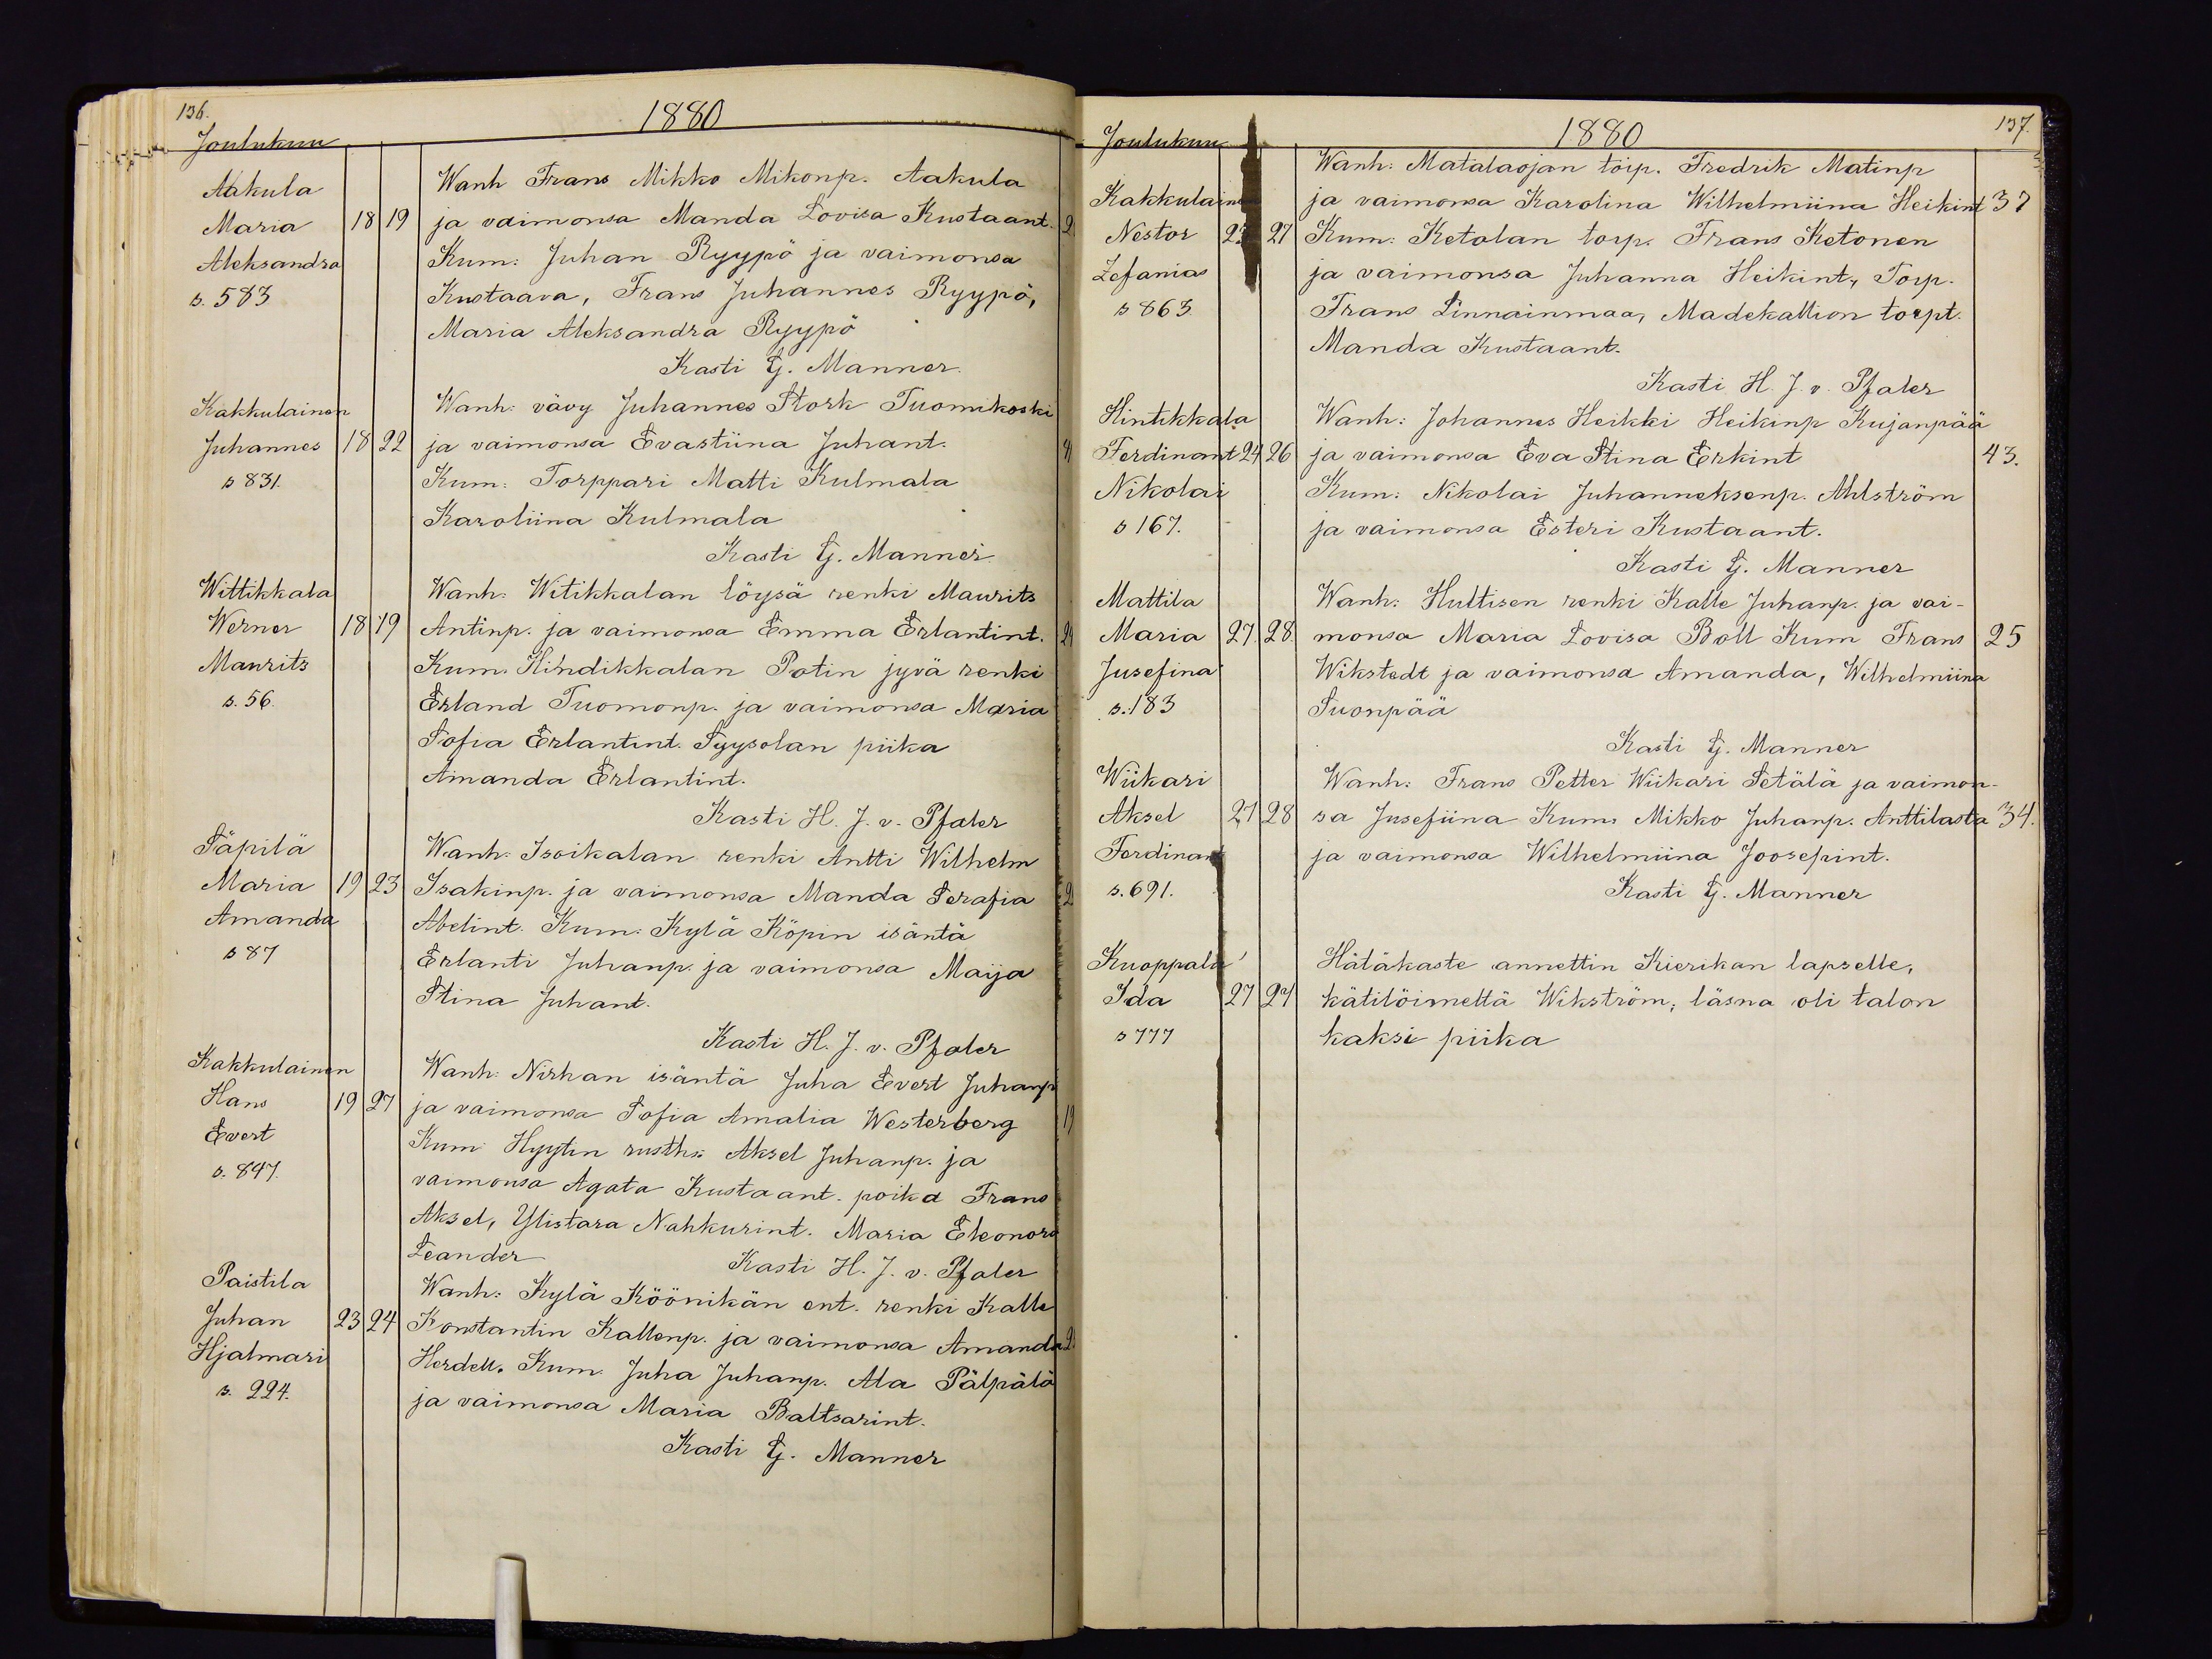 136.
1880
Joulukuu
Aakula Wanh Frans Mikko Mikonp. Aakula
Maria 18 19 ja vaimonsa Manda Lovisa Kustaant.
Aleksandra Kum: Juhan Ryypö ja vaimonsa
s. 583 Kustaava, Frans Juhannes Ryypö,
Maria Aleksandra Ryypö
Kasti G. Manner.
Kakkulainen Wanh: vävy Juhannes Stork Tuomikoski
Juhannes 18 22 ja vaimonsa Evastiina Juhant.
s 831. Kum: Torppari Matti Kulmala
Karoliina Kulmala
Kasti G. Manner.
Wittikkala Wanh: Witikkalan löysä renki Maurits
Werner 18 19 Antinp. ja vaimonsa Emma Erlantint.
Maurits Kum. Hindikkalan Potin jyvä renki
s. 56. Erland Tuomonp. ja vaimonsa Maria
Sofia Erlantint. Syysolan piika
Amanda Erlantint.
Kasti H. J. v. Pfaler
Säpilä Wanh. Isoikalan renki Antti Wilhelm
Maria 19 23 Isakinp. ja vaimonsa Manda Serafia
Amanda Abelint. Kum: Kylä Köpin isäntä
s 87 Erlanti Juhanp. ja vaimonsa Maija
Stina Juhant.
Kasti H. J. v. Pfaler
Kakkulainen Wanh: Nirhan isäntä Juha Evert Juhanp
Hans 19 27 ja vaimonsa Sofia Amalia Westerberg
Evert Kum: Hyytin rusth: Aksel Juhanp. ja
s. 847. vaimonsa Agata Kustaant. poika Frans
Aksel, Ylistara Nahkurint. Maria Eleonora
Leander Kasti H. J. v. Pfaler
Paistila Wanh: Kylä Köönikän ent. renki Kalle
Juhan 23 24 Konstantin Kallenp. ja vaimonsa Amanda
Hjalmari Herdell. Kum. Juha Juhanp. Ala Pälpälä
s. 224. ja vaimonsa Maria Baltsarint.
Kasti G. Manner
137.
1880
Joulukuu
Wanh: Matalaojan torp. Fredrik Matinp
Kakkulainen ja vaimonsa Karolina Wilhelmiina Heikint 37
Nestor 27 Kum: Ketolan torp. Frans Ketonen
Zefanias ja vaimonsa Juhanna Heikint., Torp.
s 863. Frans Linnainmaa, Madekallion torpt.
Manda Kustaant.
Kasti H. J. v. Pfaler
Hintikkala Wanh: Johannes Heikki Heikinp Kujanpää
Ferdinant 24 26 ja vaimonsa Eva Stina Erkint 43.
Nikolai Kum: Nikolai Juhanneksenp. Ahlström
s 167. ja vaimonsa Esteri Kustaant.
Kasti G. Manner
Mattila Wanh: Huttisen renki Kalle Juhanp. ja vai-
Maria 27. 28. monsa Maria Lovisa Boll Kum Frans 25
Jusefina Wikstedt ja vaimonsa Amanda, Wilhelmiina
s. 183 Suonpää
Kasti G. Manner
Wiikari Wanh: Frans Petter Wiikari Setälä ja vaimon-
Aksel 27 28 sa Jusefiina Kum. Mikko Juhanp. Anttilasta 34.
Ferdinant ja vaimonsa Wilhelmiina Joosepint.
s. 691. Kasti G. Manner
Kuoppala Hätäkaste annettin Kierikan lapselle,
Ida 27 27 kätilöimettä Wikström, läsna oli talon
s 777 kaksi piika